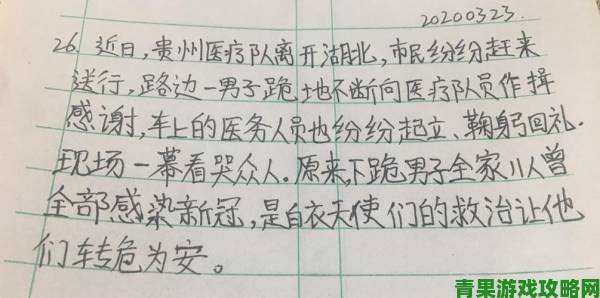 20200323.
26. 近日，贵州医疗队离开湖北，市民纷纷赶来
送行，路边一男子跪地不断向医疗队员作揖
感谢，车上的医务人员也纷纷起立、鞠躬回礼.
现场一幕看哭众人.原来，下跪男子全家儿人曾
全部感染新冠，是白衣天使们的救治让他
们转危为安。
青果游戏攻略网